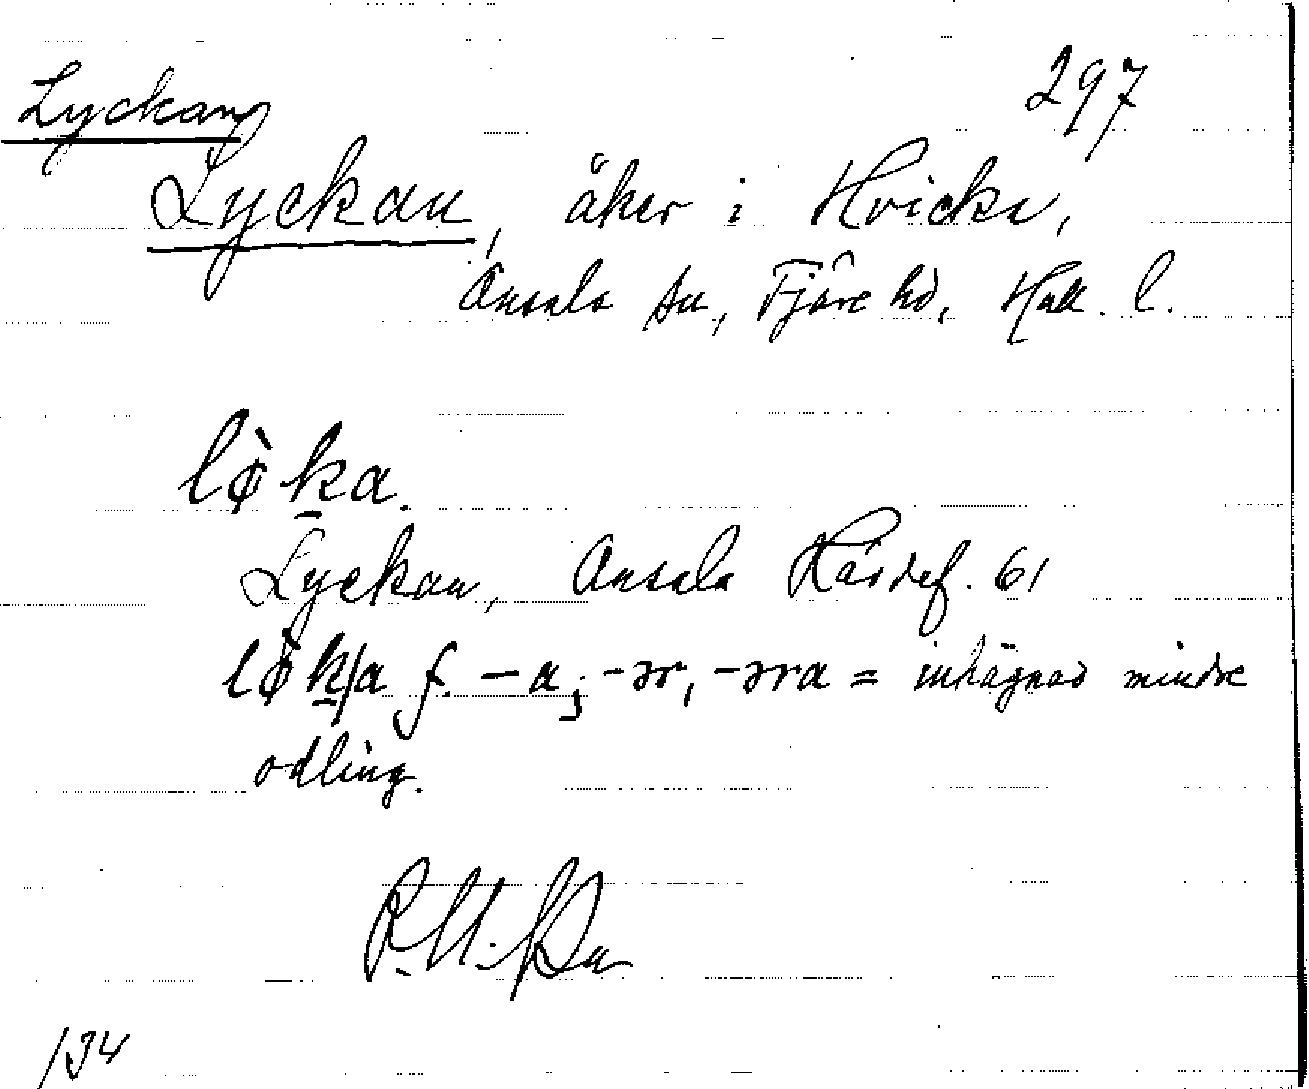 Lyckan 297
Lyckan, åker i Hvicks,
Ansala sn, Fjäre hd, Hall. l.
lø̀ḵa.
Lyckan, Ansala 61
lø̀ḵ/a f. -a; -ər, -əra = inhägnad mindre
odling.
134